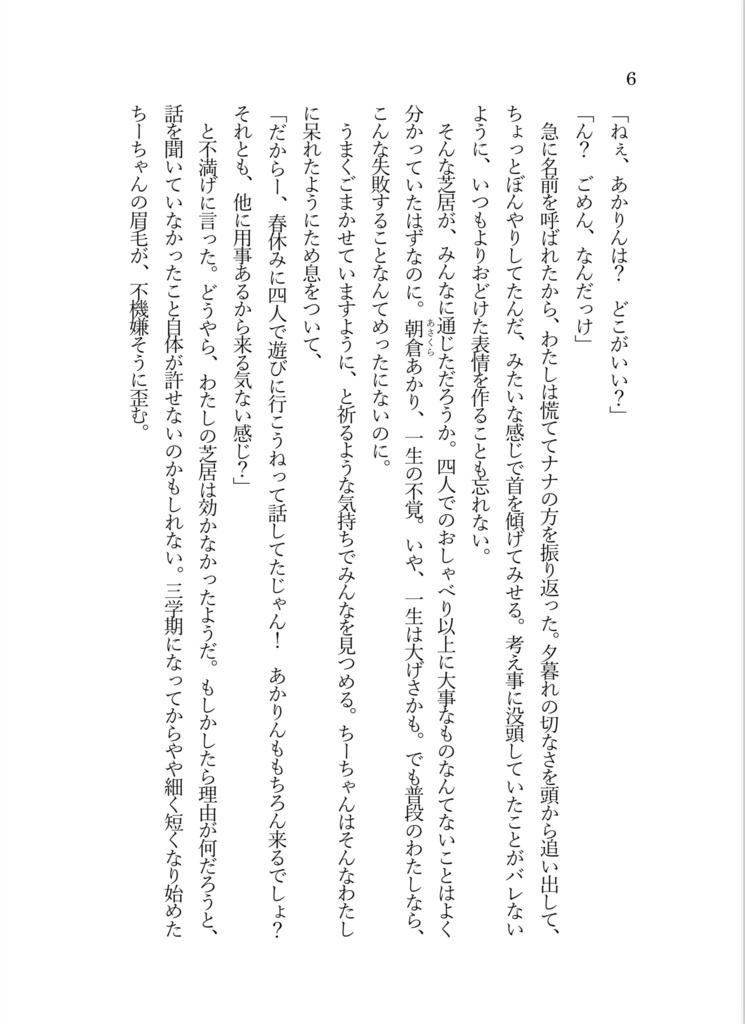 6
「ねぇ、あかりんは？　どこがいい？」
「ん？　ごめん、なんだっけ」
　急に名前を呼ばれたから、わたしは慌ててナナの方を振り返った。夕暮れの切なさを頭から追い出して、
ちょっとぼんやりしてたんだ、みたいな感じで首を傾げてみせる。考え事に没頭していたことがバレない
ように、いつもよりおどけた表情を作ることも忘れない。
　そんな芝居が、みんなに通じただろうか。四人でのおしゃべり以上に大事なものなんてないことはよく
分かっていたはずなのに。朝倉あかり、一生の不覚。いや、一生は大げさかも。でも普段のわたしなら、
あさくら
こんな失敗することなんてめったにないのに。
　うまくごまかせていますように、と祈るような気持ちでみんなを見つめる。ちーちゃんはそんなわたし
に呆れたようにため息をついて、
「だからー、春休みに四人で遊びに行こうねって話してたじゃん！　あかりんももちろん来るでしょ？
それとも、他に用事あるから来る気ない感じ？」
　と不満げに言った。どうやら、わたしの芝居は効かなかったようだ。もしかしたら理由が何だろうと、
話を聞いていなかったこと自体が許せないのかもしれない。三学期になってからやや細く短くなり始めた
ちーちゃんの眉毛が、不機嫌そうに歪む。